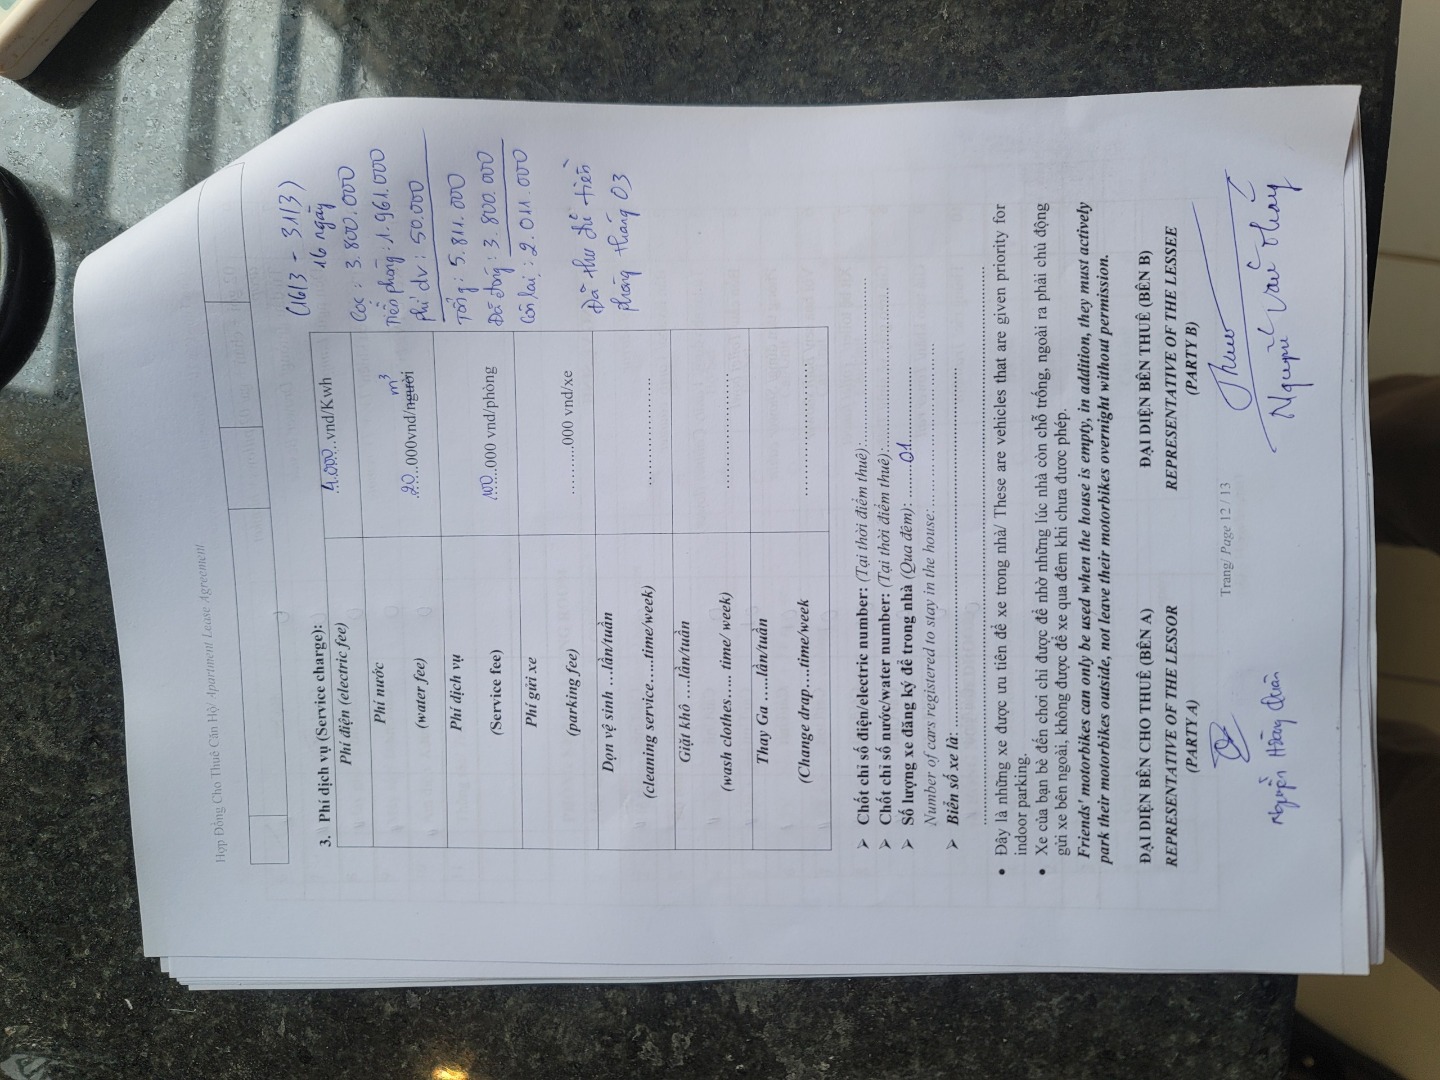 Hợp Đồng Cho Thuê Căn Hộ/ Apartment Lease Agreement
3. Phí dịch vụ (Service charge):
Phí điện (electric fee)
4.000..vnd/Kwh
Phí nước
(water fee)
m³
20...000vnd/người
Phí dịch vụ
(Service fee)
100...000 vnd/phòng
Phí gửi xe
(parking fee)
..........000 vnd/xe
Dọn vệ sinh …lần/tuần
(cleaning service…..time/week)
……………………
Giặt khô …lần/tuần
(wash clothes….. time/ week)
……………………
Thay Ga …..lần/tuần
(Change drap….time/week
……………………
(16/3 - 31/3)
16 ngày
Cọc : 3.800.000
Tiền phòng : 1.961.000
phí dv : 50.000
Tổng : 5.811.000
Đã đóng : 3.800.000
Còn lại : 2.011.000
Đã thu đủ tiền
phòng tháng 03
➢ Chốt chỉ số điện/electric number: (Tại thời điểm thuê):
➢ Chốt chỉ số nước/water number: (Tại thời điểm thuê):
➢ Số lượng xe đăng ký để trong nhà (Qua đêm): 01
Number of cars registered to stay in the house:
➢ Biển số xe là:
• Đây là những xe được ưu tiên để xe trong nhà/ These are vehicles that are given priority for
indoor parking.
• Xe của bạn bè đến chơi chỉ được để nhờ những lúc nhà còn chỗ trống, ngoài ra phải chủ động
gửi xe bên ngoài, không được để xe qua đêm khi chưa được phép.
Friends' motorbikes can only be used when the house is empty, in addition, they must actively
park their motorbikes outside, not leave their motorbikes overnight without permission.
ĐẠI DIỆN BÊN CHO THUÊ (BÊN A)
REPRESENTATIVE OF THE LESSOR
(PARTY A)
Nguyễn Hoàng Quân
ĐẠI DIỆN BÊN THUÊ (BÊN B)
REPRESENTATIVE OF THE LESSEE
(PARTY B)
Trang/ Page 12 / 13